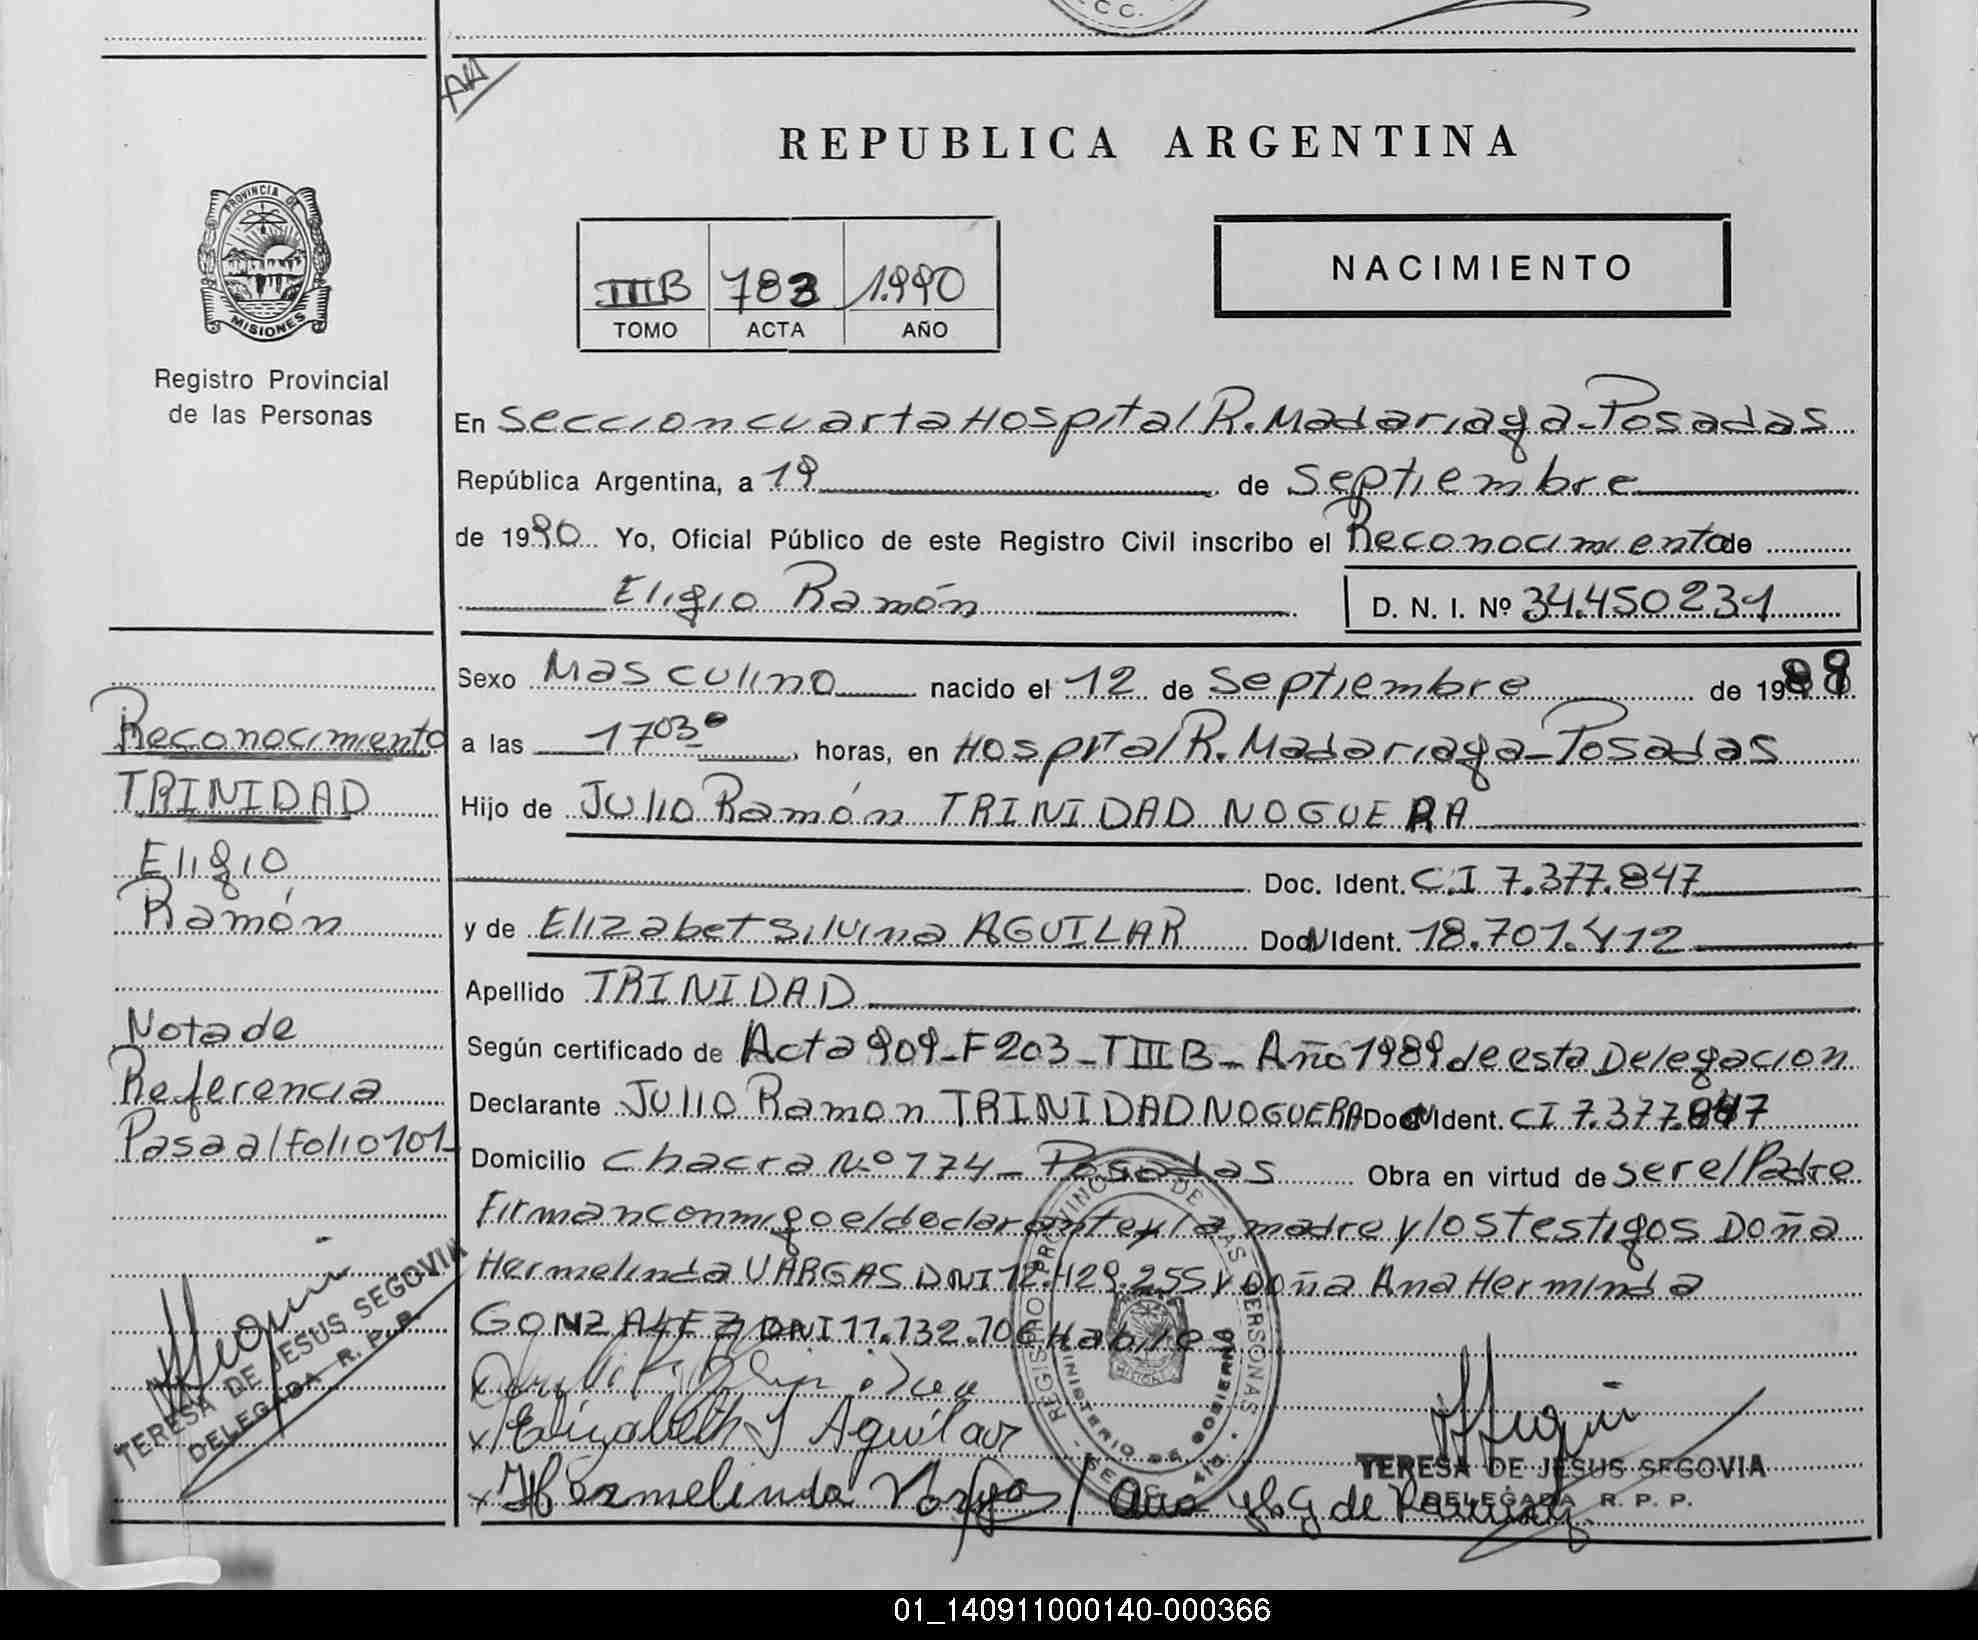 C C.
AA
REPUBLICA ARGENTINA
PROVINCIA DE
MISIONES
Registro Provincial
de las Personas
IIIB 783 1.990
TOMO ACTA AÑO
NACIMIENTO
En Seccion cuarta Hospital R. Madariaga - Posadas
República Argentina, a 19 de Septiembre
de 1990 Yo, Oficial Público de este Registro Civil inscribo el Reconocimiento de
Eligio Ramón
D. N. I. Nº 34.450231
Sexo Masculino nacido el 12 de Septiembre de 1989
a las 17 03 horas, en Hospital R. Madariaga - Posadas
Hijo de Julio Ramón TRINIDAD NOGUERA
Doc. Ident. C.I 7.377.847
y de Elizabet Silvina AGUILAR Doc N Ident. 18.701.412
Apellido TRINIDAD
Según certificado de Acta 909 - F 203 - T III B - Año 1989 de esta Delegacion
Declarante Julio Ramon TRINIDAD NOGUERA Doc N Ident. CI 7.377.847
Domicilio Chacra Nº 174 - Posadas Obra en virtud de ser el Padre
Firman conmigo el declarante y la madre y los testigos Doña
Hermelinda VARGAS DNI 12.429.255 y Doña Ana Herminda
GONZALEZ DNI 11.732.706 Habiles
x Elizabeth S Aguilar
x Hermelinda Vargas / Ana H. G de
REGISTRO PROVINCIAL DE LAS PERSONAS
MINISTERIO DE GOBIERNO
TERESA DE JESUS SEGOVIA
DELEGADA R. P. P.
Reconocimiento
TRINIDAD
Eligio
Ramón
Nota de
Referencia
Pasa al folio 101-
TERESA DE JESUS SEGOVIA
DELEGADA R. P. P.
01_140911000140-000366